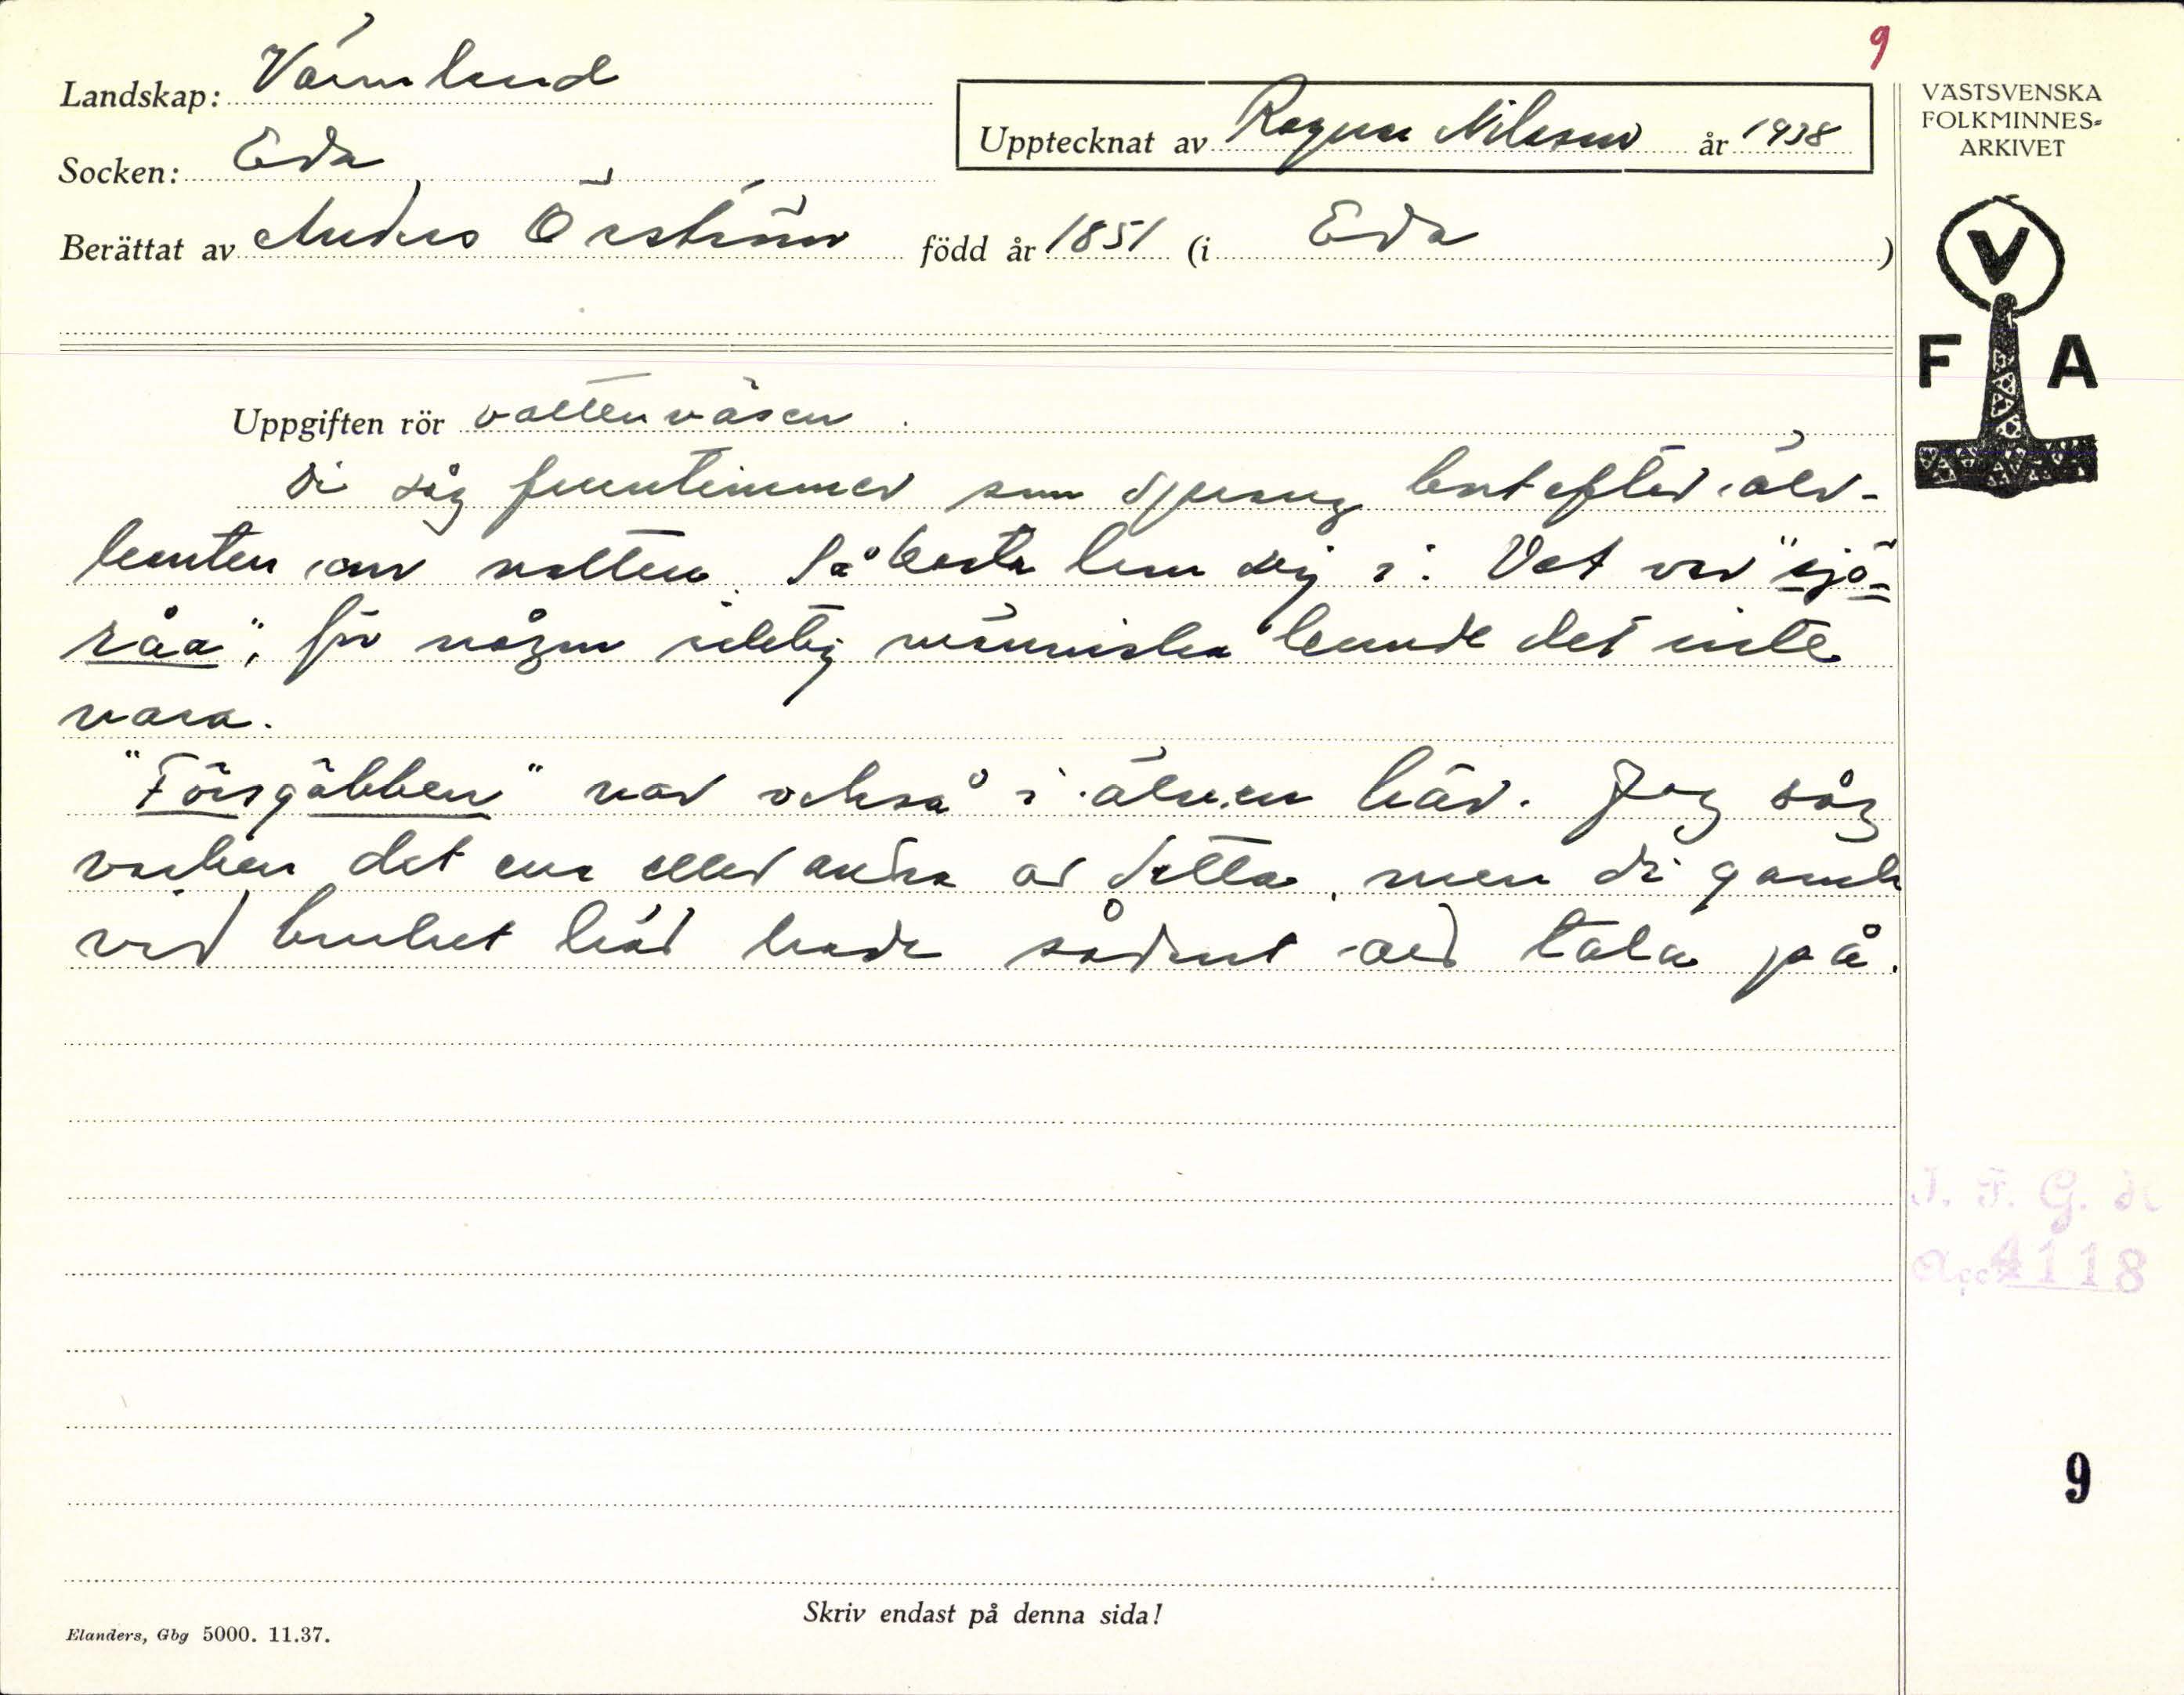 9
Landskap: Värmland
Upptecknat av Ragnar Nilsson år 1938
Socken: Eda
Berättat av Anders Örström född år 1851 (i Eda)
VÄSTSVENSKA
FOLKMINNES-
ARKIVET
V
F A
Uppgiften rör vattenväsen.
Di såg fruntimmer som sprang bort efter älv-
kanten om natten. Så kasta hon sig i. Det var "sjö-
råa", för någon riktig människa kunde det inte
vara.
"Försgôbben" var också i älven här. Jag såg
varken det ena eller andra av detta, men di gamle
vid bruket här hade sådant där tala på.
J. F. G. N
Acc 4118
9
Skriv endast på denna sida!
Elanders, Gbg 5000. 11.37.